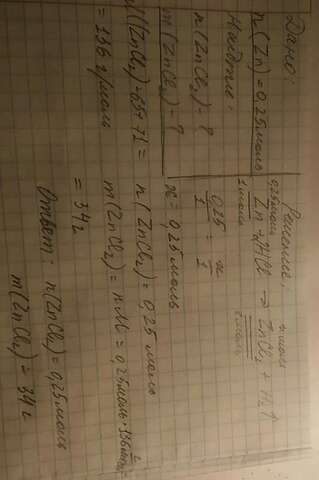 Дано:
n(Zn)=0,25моль
Найти:
n(ZnCl₂)-?
m(ZnCl₂)-?
M(ZnCl₂)=65+71=
=136 г/моль
Решение
0,25моль x моль
Zn + 2HCl → ZnCl₂ + H₂↑
1моль 1моль
0,25/1 = x/1
x = 0,25 моль
n(ZnCl₂)=0,25 моль
m(ZnCl₂)=nM=0,25моль·136г/моль=
=34г
Ответ: n(ZnCl₂)=0,25моль
m(ZnCl₂)=34г